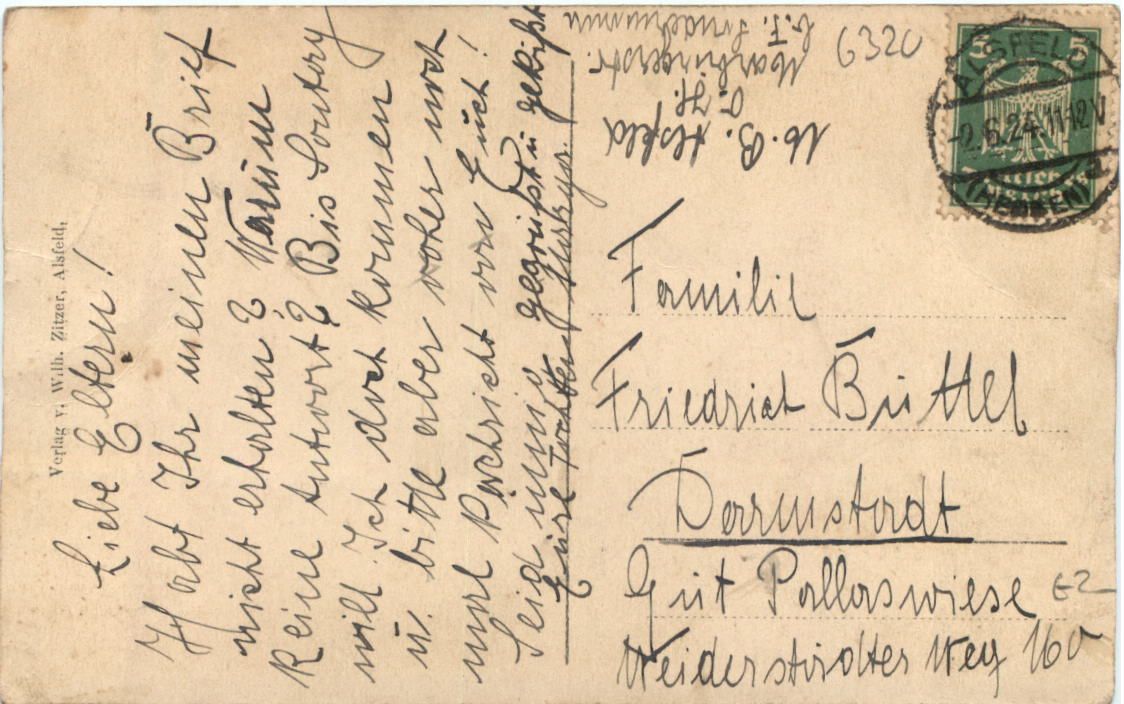 Liebe Eltern!
Habt Ihr meinen Brief
nicht erhalten? Warum
keine Antwort? Bis Sontag
will Ich doch kommen
u. bitte aber voher noch
mal Nachricht von Euch!
Seid nun gegrüßt u. geküßt
Eure Tochter
Verlag v. Wilh. Zitzer, Alsfeld.
Alsfeld
Marburgerstr.
6320
ALSFELD
-2.6.24.11-12V
(HESSEN)
5 5
Familie
Friedrich Büttel
Darmstadt
Gut Pallaswiese
Weiderstädter Weg 160